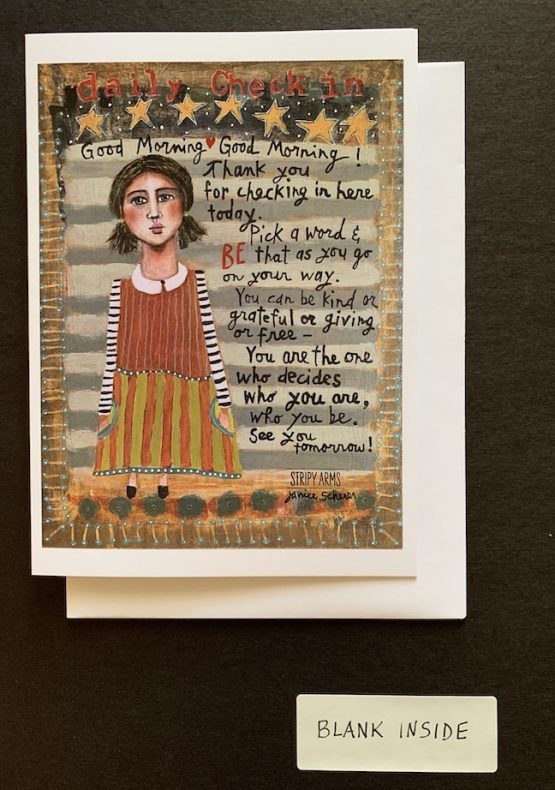 daily Check in
Good Morning ♥ Good Morning !
Thank you
for checking in here
today.
Pick a word &
BE that as you go
on your way.
You can be kind or
grateful or giving
or free –
You are the one
who decides
who you are,
who you be.
See you
tomorrow!
STRIPY ARMS
Janice Scherer
BLANK INSIDE